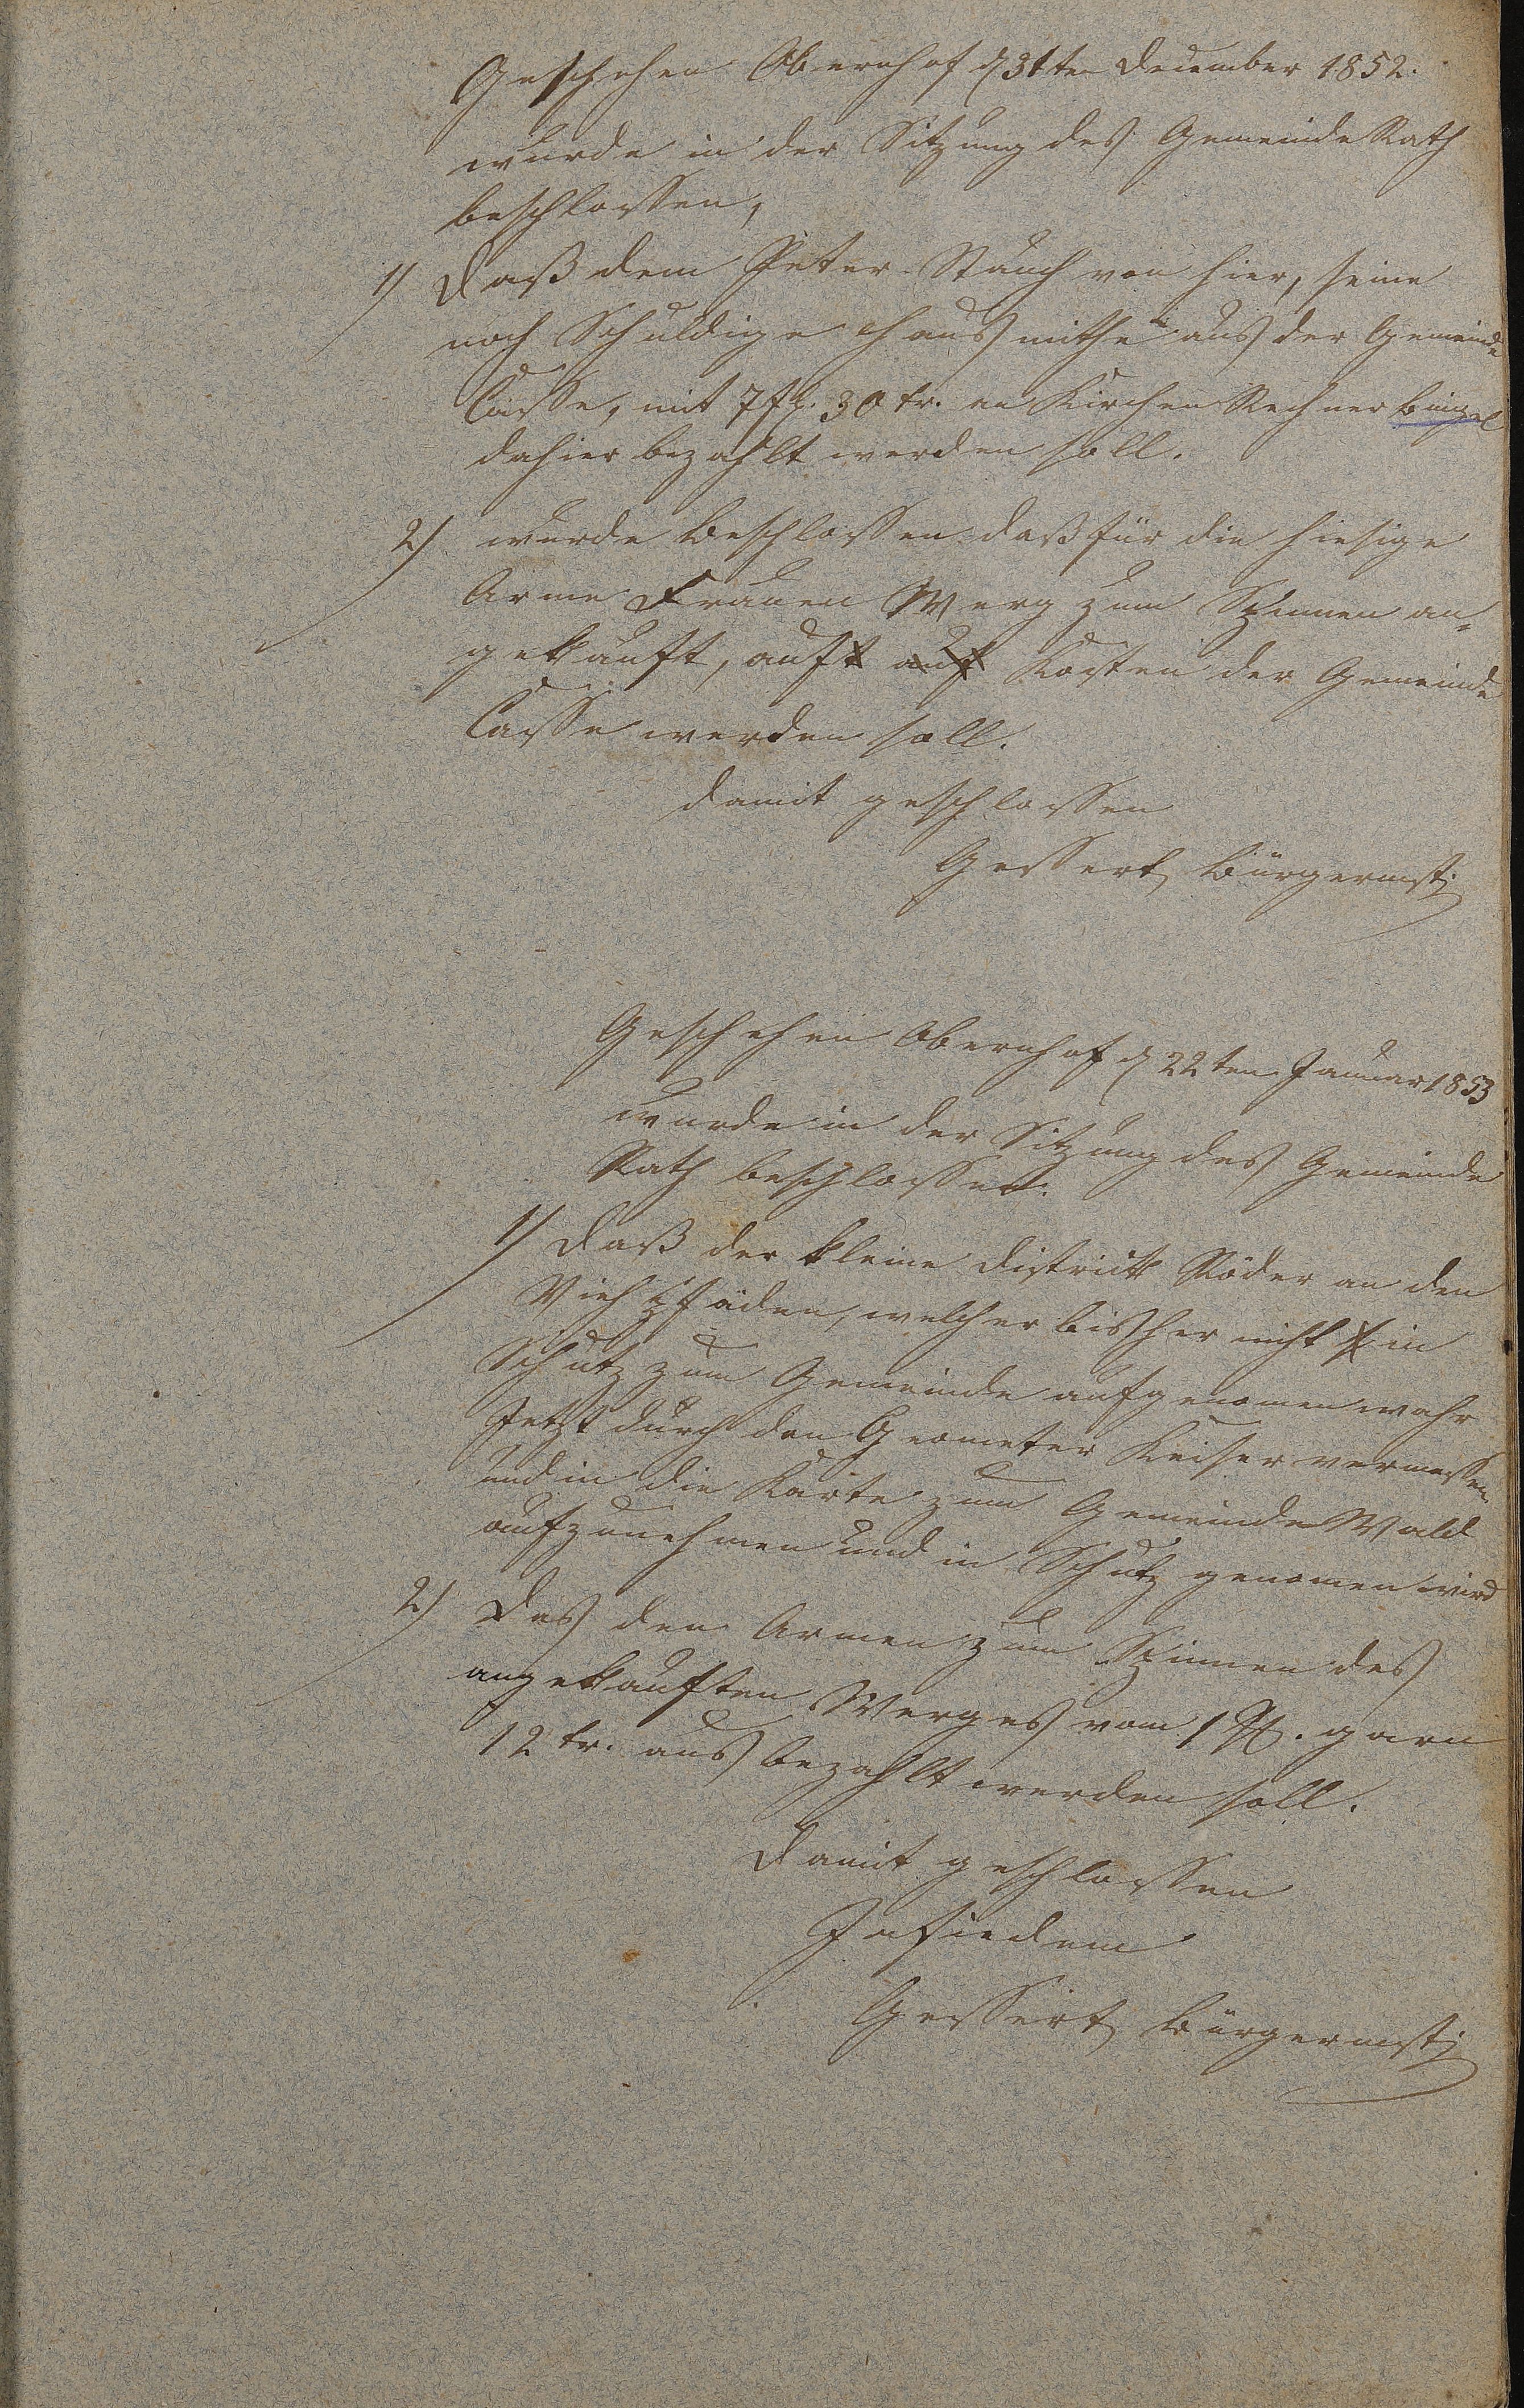 Geschehen Obernhof d 31ten December 1852.
wurde in der Sitzung des Gemeinde Rath
beschlossen,
1/ Daß dem Peter Stauch von hier, seine
noch Schuldige Hausmithe aus der Gemeinde
Casse, mit 7 fl. 30 kr. an Kirchen Rechner Bingel
dahier bezahlt werden soll.
2/ wurde Beschlossen daß für die hiesige
Arme Frauen Werg zum Spinnen an-
gekauft, auf auf Kosten der Gemeinde
Casse werden soll.
damit geschlossen
Gessert Bürgermstr
Geschehen Obernhof d 22ten Januar 1853
wurde in der Sitzung des Gemeinde
Rath beschlossen.
1/ Daß der kleine District Röder an den
Viehpfäden, welcher bisher nicht in
Schutz zum Gemeinde aufgenomen wahr
Jetzt durch den Geometer Keiser vermessen
und in die Karte zum Gemeinde Wald
aufzunehmen und in Schutz genomen wird
2/ Das den Armen zum Spinnen des
angekauften Werges vom 1 ℔. garn
12 kr. ausbezahlt werden soll.
Damit geschlossen
In fidem
Gessert Bürgermstr